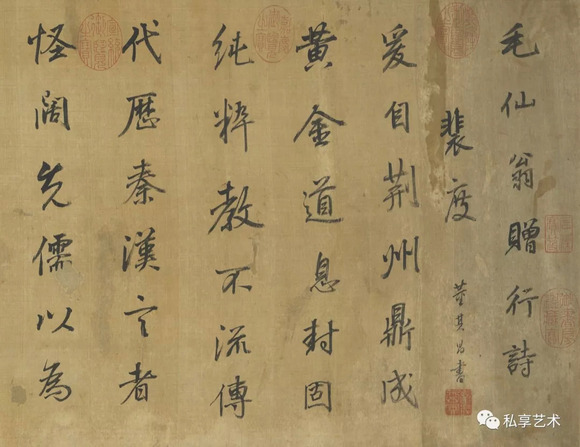 毛仙翁贈行詩
裴度
董其昌書
爰自荆州鼎成
黄金道息封固
純粹教不流傳
代歷秦漢言者
怪闊先儒以為
私享艺术